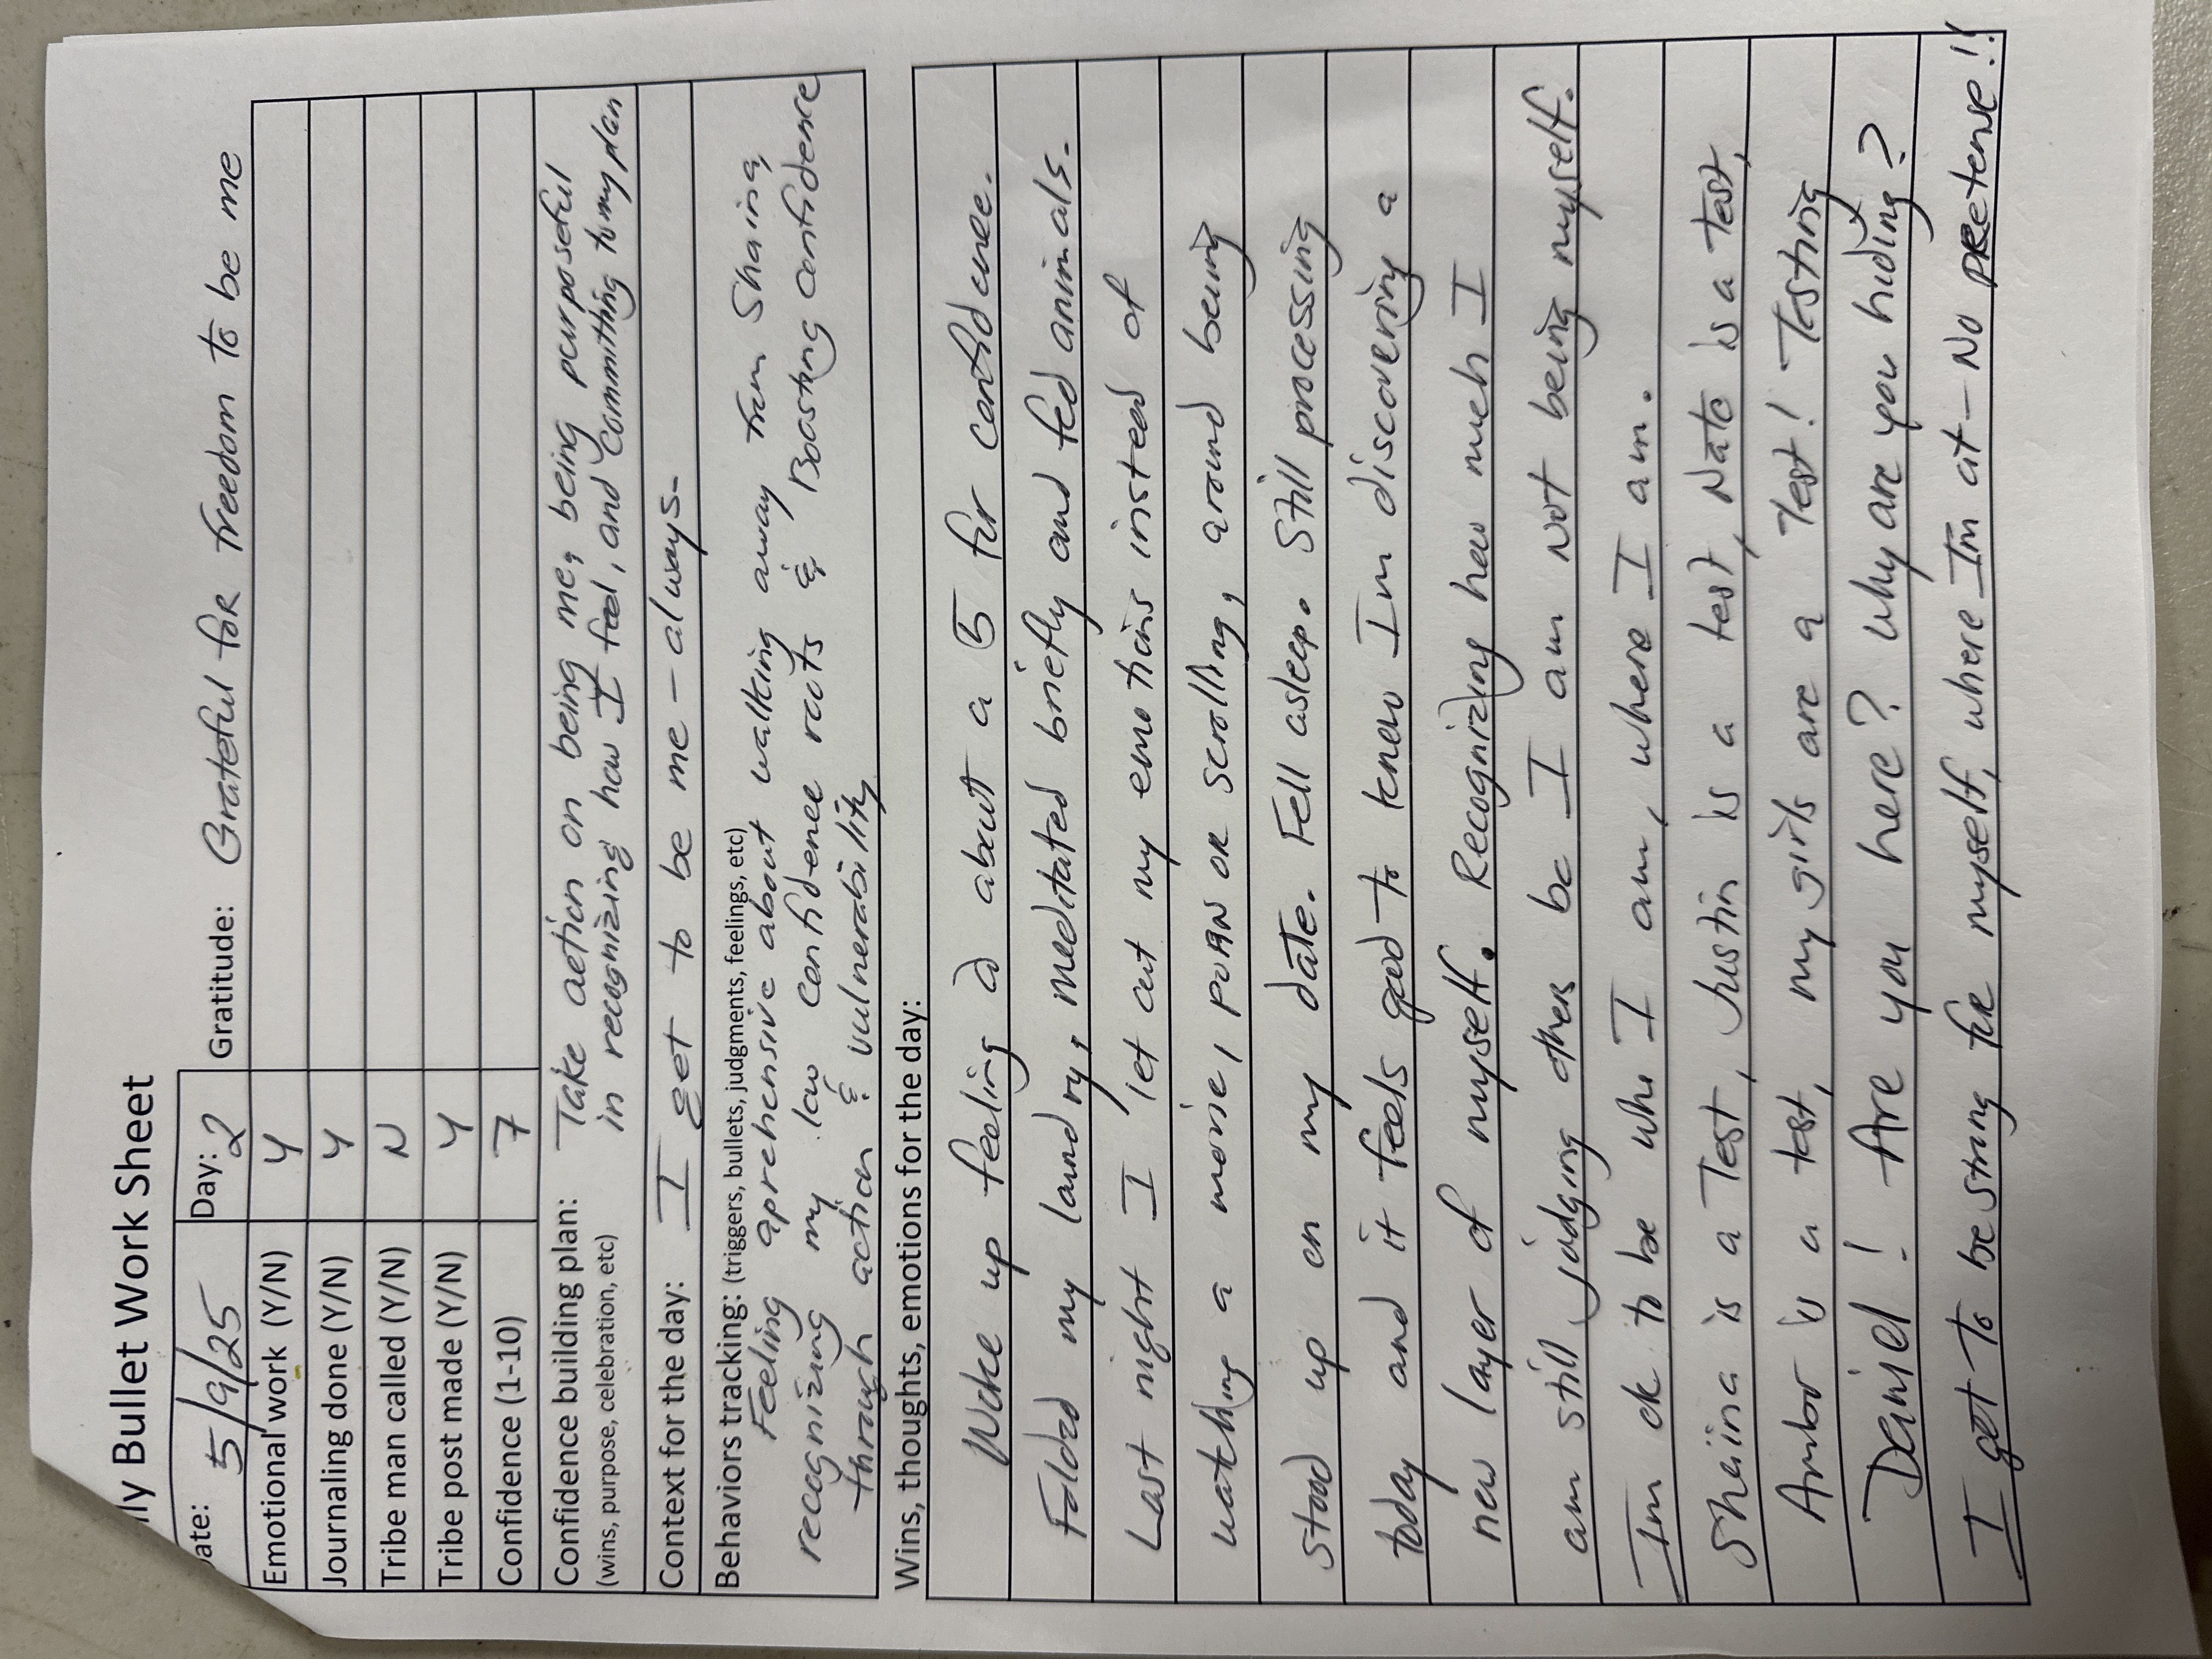 ily Bullet Work Sheet
Date: 5/9/25 Day: 2 Gratitude: Grateful for freedom to be me
Emotional work (Y/N) Y
Journaling done (Y/N) Y
Tribe man called (Y/N) N
Tribe post made (Y/N) Y
Confidence (1-10) 7
Confidence building plan: Take action on being me, being purposeful
(wins, purpose, celebration, etc) in recognizing how I feel, and committing to my plan
Context for the day: I get to be me - always.
Behaviors tracking: (triggers, bullets, judgments, feelings, etc)
Feeling aprehensive about walking away from Shaina,
recognizing my low confidence roots & Boosting confidence
through action & vulnerability
Wins, thoughts, emotions for the day:
Woke up feeling a about a 5 for confidence.
Folded my laundry, meditated briefly and fed animals.
Last night I let out my emotions instead of
watching a movie, porn or scrolling, around being
stood up on my date. Fell asleep. Still processing
today and it feels good to know Im discovering a
new layer of myself. Recognizing how much I
am still judging others bc I am not being myself.
Im ok to be who I am, where I am.
Sheiina is a Test, Justin is a test, Nate is a test,
Ambor is a test, my girls are a Test! Testing
Daniel! Are you here? Why are you hiding?
I get to be strong for myself, where Im at - No pretense!!